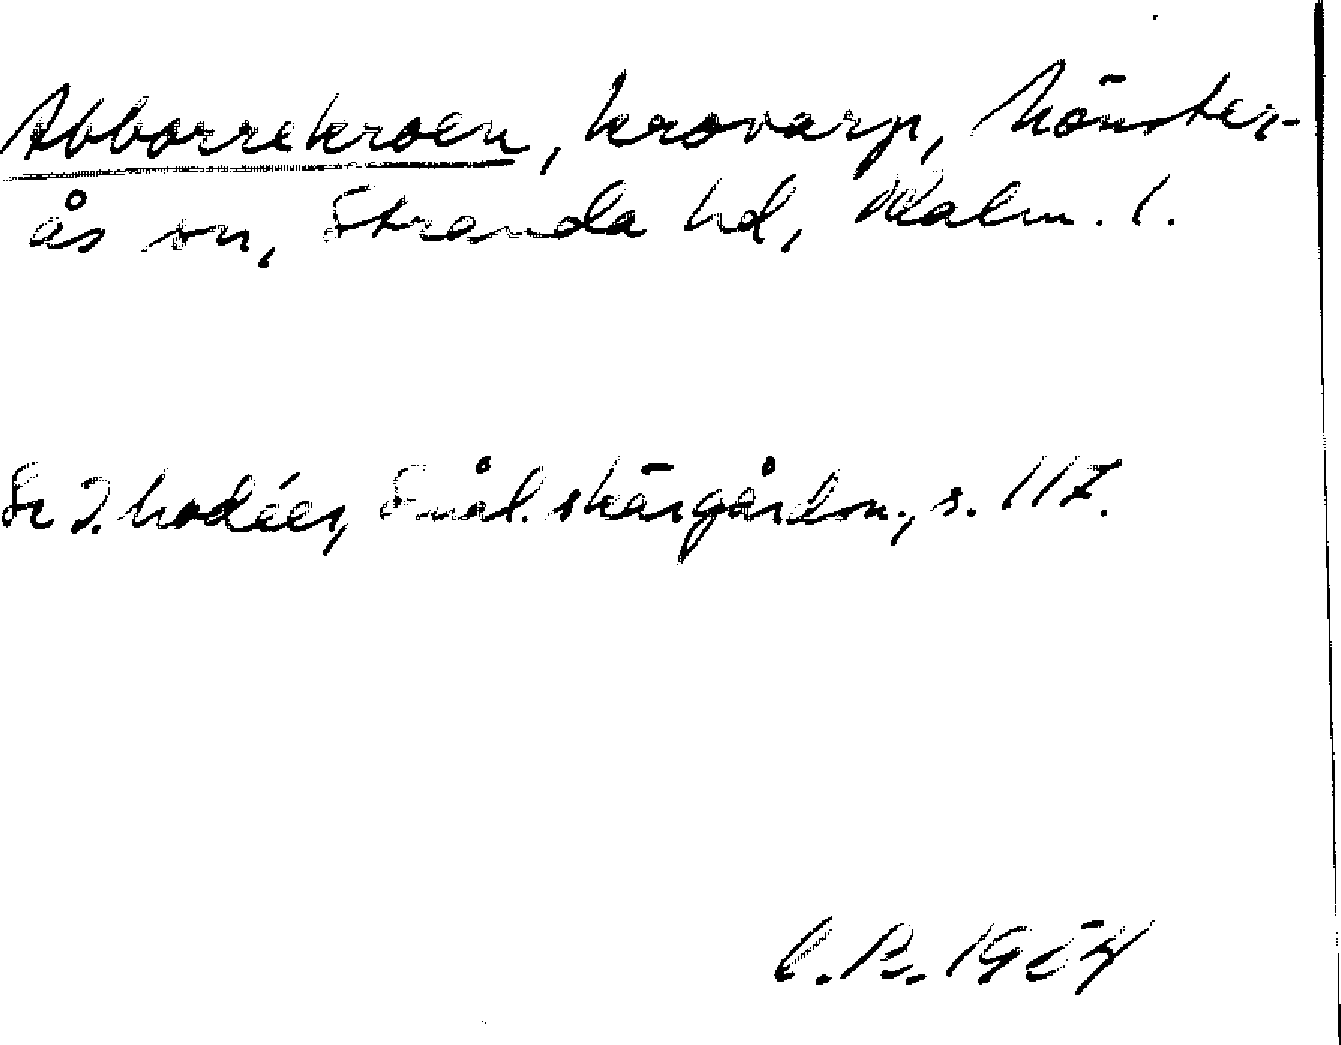 Abborrekroen, krovarp, Mönster-
ås sn, Stranda hd, Kalm. l.
Se I. Modéer, Smål. skärgårdsn., s. 117.
C.P. 1954